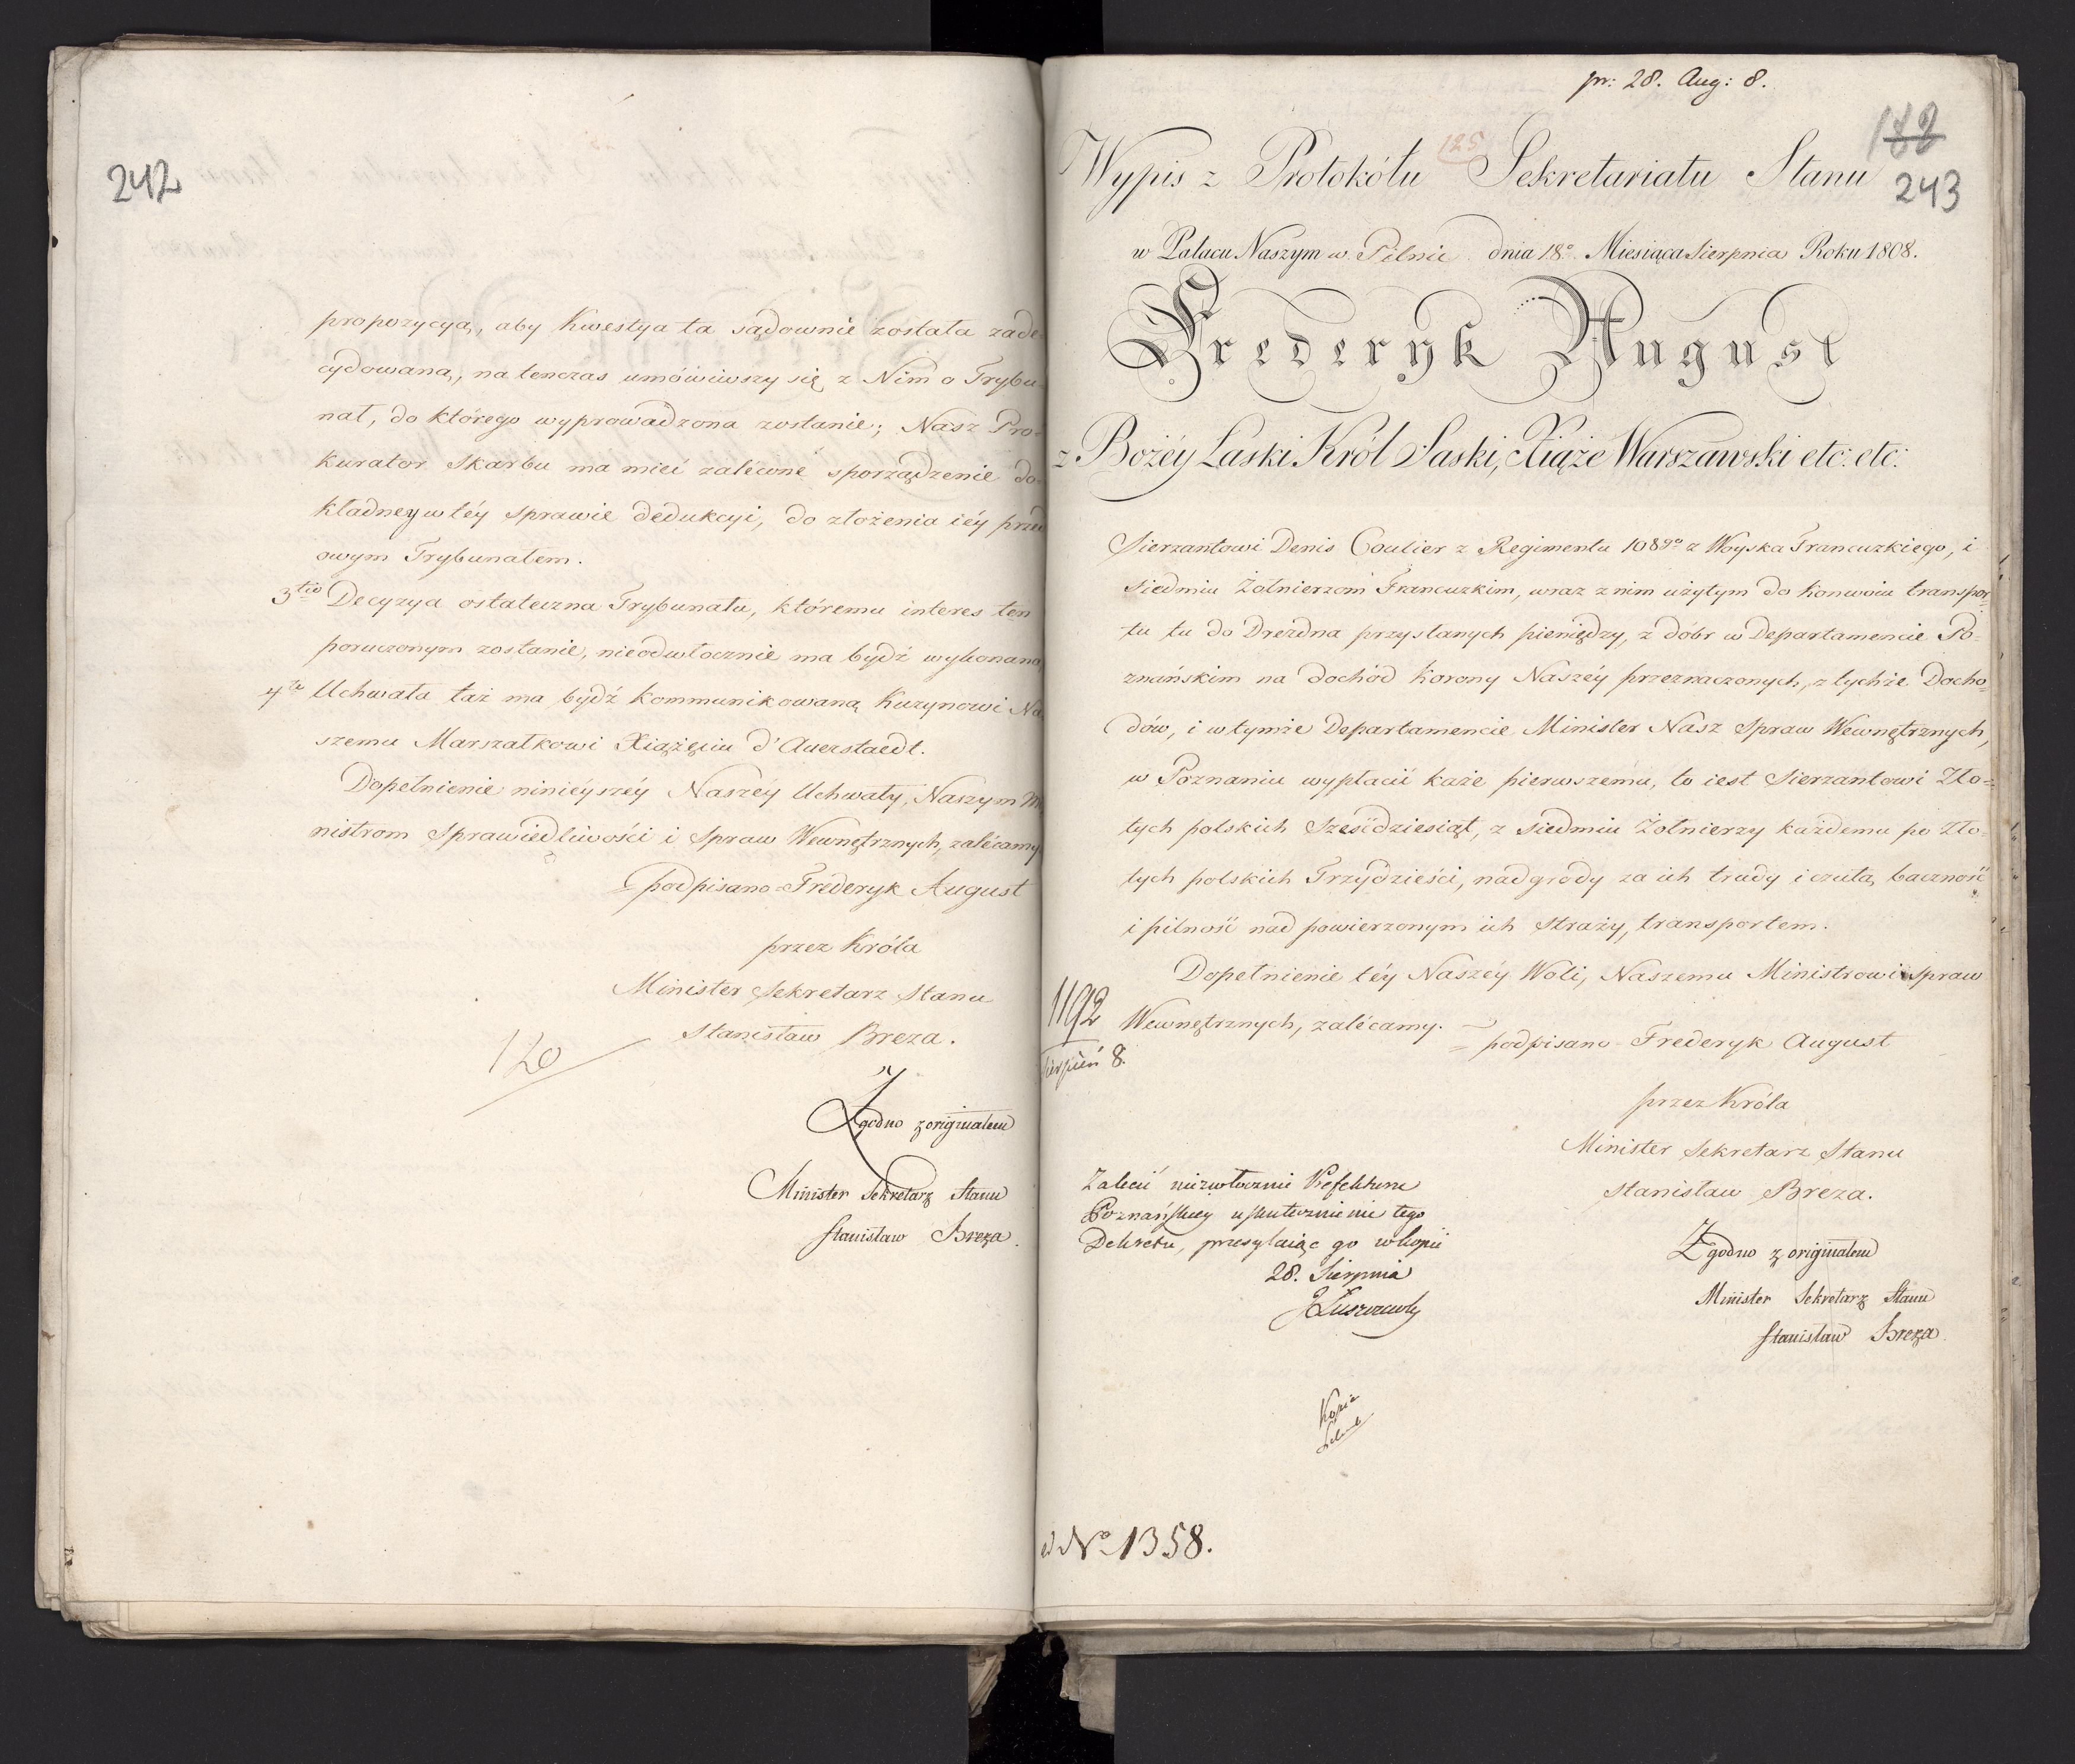 242
propozycyą, aby Kwestya ta sądownie została zade-
cydowaną, na tenczas umówiwszy się z Nim o Trybu-
nał, do którego wyprowadzona zostanie; Nasz Pro-
kurator Skarbu ma mieć zalécone sporządzenie do-
kładney w téy sprawie dedukcyi, do złożenia iéy przed
owym Trybunałem.
3tio Decyzya ostateczna Trybunału, któremu interes ten
poruczonym zostanie, nieodwłocznie ma bydź wykonaną
4to Uchwała taż ma bydź kommunikowaną Kuzynowi Na-
szemu Marszałkowi Xiążęciu d'Auerstaedt.
Dopełnienie ninieyszéy Naszéy Uchwały, Naszym Mi-
nistrom Sprawiedliwości i Spraw Wewnętrznych, zalécamy
podpisano Frederyk August
przez Króla
Minister Sekretarz Stanu
Stanisław Breza.
120
Zgodno z originałem
Minister Sekretarz Stanu
Stanisław Breza.
pr: 28. Aug: 8.
182
125
Wypis z Protokółu Sekretariatu Stanu
243
w Pałacu Naszym w Pilnic dnia 18o Miesiąca Sierpnia Roku 1808.
Frederyk August
z Bożéy Łaski Król Saski, Xiąże Warszawski etc: etc:
Sierzantowi Denis Coulier z Regimentu 108go z Woyska Francuzkiego, i
siedmiu Żołnierzom Francuzkim, wraz z nim użytym do konwoiu transpor-
tu tu do Drezdna przysłanych pieniędzy, z dóbr w Departamencie Po-
znańskim na dochód Korony Naszéy przeznaczonych, z tychże Docho-
dów, i w tymże Departamencie Minister Nasz Spraw Wewnętrznych,
w Poznaniu wypłacić każe pierwszemu, to iest Sierzantowi Zło-
tych polskich Sześćdziesiąt, z siedmiu Żołnierzy każdemu po Zło-
tych polskich Trzydzieści, nadgrody za ich trudy i czułą baczność
i pilność nad powierzonym ich Straży, transportem.
Dopełnienie téy Naszéy Woli, Naszemu Ministrowi Spraw
Wewnętrznych, zalécamy.
1192
Sierpień 8.
podpisano Frederyk August
przez Króla
Minister Sekretarz Stanu
Stanisław Breza.
Zgodno z originałem
Minister Sekretarz Stanu
Stanisław Breza
Zalecić niezwłocznie Prefekturze
Poznańskiey uskutecznienie tego
Dekretu, przesyłaiąc go w kopii
28. Sierpnia
Łuszczewski
Kopia
No 1358.